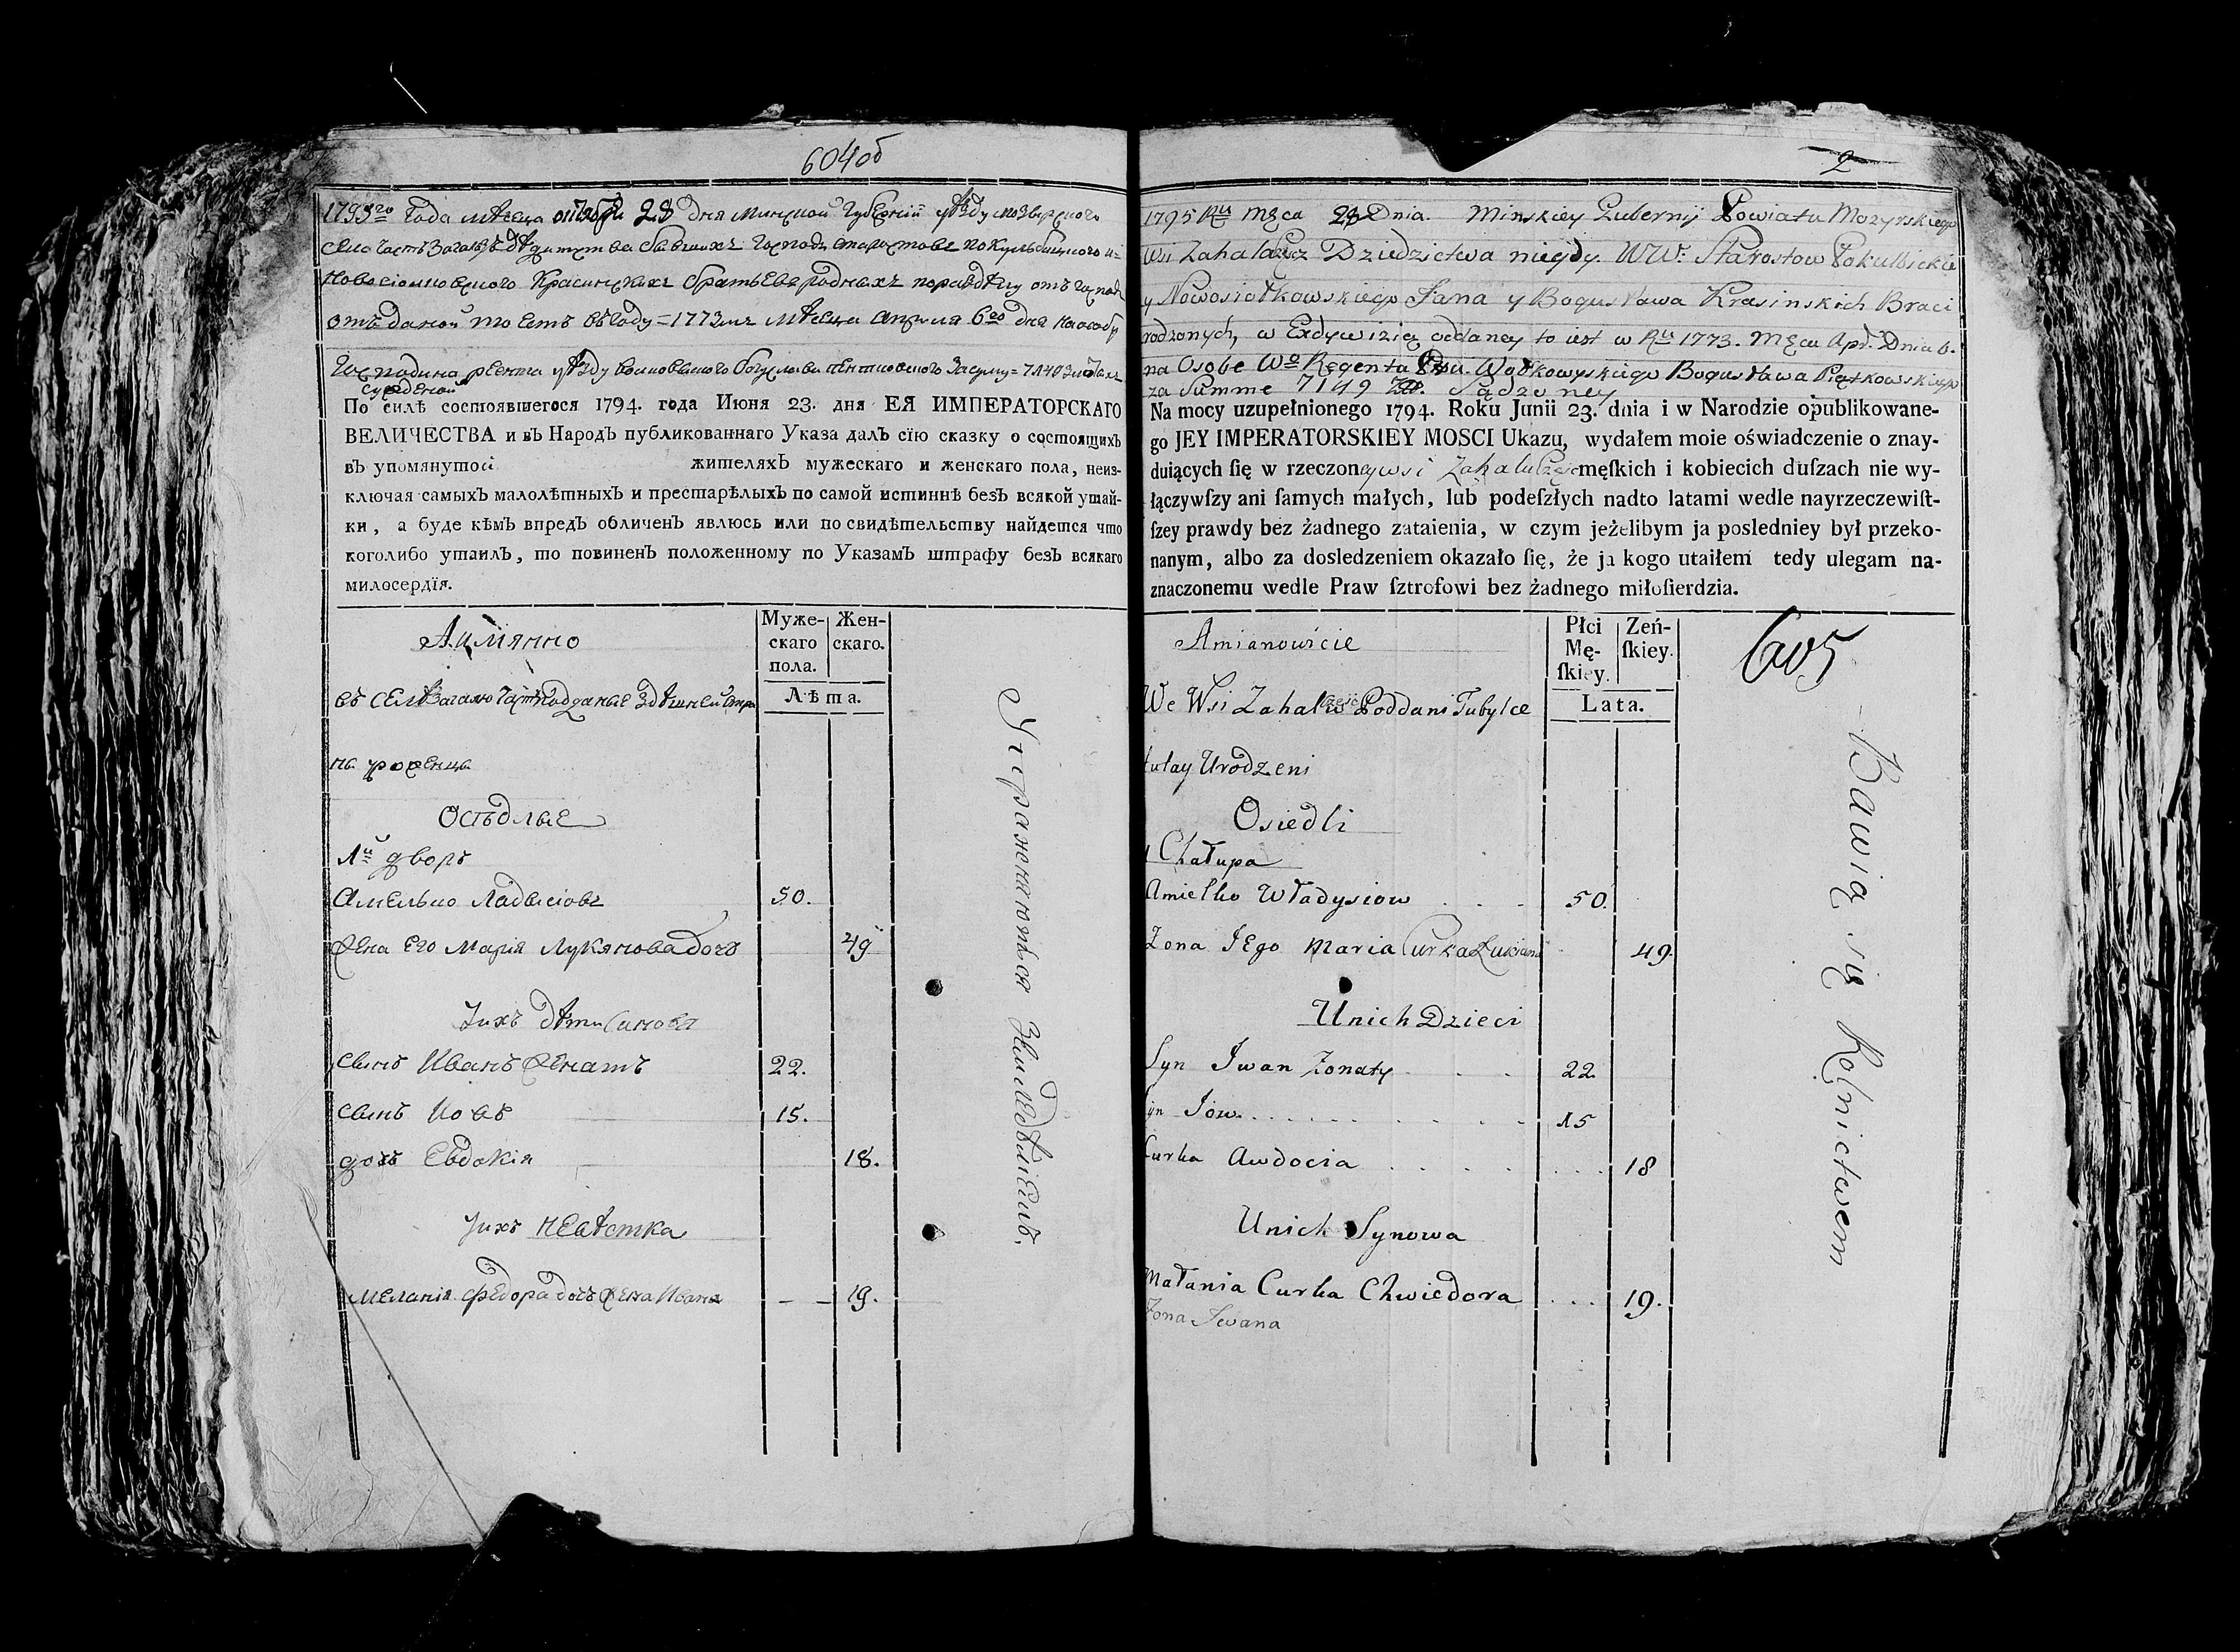 604об
1795го Года мѣсеца октября 28 Дня Минской Губернiи уѣзду мозырского
села часть Загалѣ дѣдитства бывшихъ Господъ старостовъ покульбицкого и
Новосiолковского Красинскихъ братьевъ родныхъ по разделу отъ Господ
отъ даной то естъ въ Году = 1773мъ мѣсеца априля 6го дня на особу
Господина реента уѣзду волковыского богуслава пентковского За суму = 7149 злотыхъ
сужденой
По силѣ состоявшегося 1794. года Июня 23. дня ЕЯ ИМПЕРАТОРСКАГО
ВЕЛИЧЕСТВА и въ Народъ публикованнаго Указа далъ сїю сказку о состоящихъ
въ упомянутой жителяхъ мужескаго и женскаго пола, неиз-
ключая самыхъ малолѣтныхъ и престарѣлыхъ по самой истиннѣ безъ всякой утай-
ки, а буде кѣмъ впредъ обличенъ явлюсь или по свидѣтельству найдется что
коголибо утаилъ, то повиненъ положенному по Указамъ штрафу безъ всякаго
милосердїя.
А имянно
Муже-
скаго
пола.
Жен-
скаго.
Лѣта.
въ селѣ Загалю часть подданые здѣшней
на уроженца
Осѣдлые
1й дворъ
Амелько Ладысiовъ 50.
Жена Его Марiя Лукянова дочъ 49
У ихъ дѣти Сыновя
Сынъ Иванъ Женатъ 22.
Сынъ Иовъ 15.
дочъ Евдокiя 18.
У ихъ невѣстка
Меланiя Федора дочъ Жена Ивана 19.
Упражняются Земледѣлiемъ.
2
1795 Ru Męca 28 Dnia. Minskiey Gubernij Powiatu Mozyrskiego
Wsi Zahala Dziedzictwa niegdy. WW: Starostow Pokulbickie
y Nowosiołkowskiego Jana y Bogusława Krasinskich Braci
rodzonych, w Exdywizią oddaney to iest w Ru 1773. Męca Apr. Dnia 6.
na Osobe Wo Regenta Ptu. Wołkowyskiego Bogusława Piątkowskiego
za Summe 7149 Zł. Sądzoney
Na mocy uzupełnionego 1794. Roku Junii 23. dnia i w Narodzie opublikowane-
go JEY IMPERATORSKIEY MOSCI Ukazu, wydałem moie oświadczenie o znay-
duiących ſię w rzeczoney wsi Zahalu męſkich i kobiecich duſzach nie wy-
łączywſzy ani ſamych małych, lub podeſzłych nadto latami wedle nayrzeczewiſt-
ſzey prawdy bez żadnego zataienia, w czym jeżelibym ja posledniey był przeko-
nanym, albo za dosledzeniem okazało ſię, że ja kogo utaiłem tedy ulegam na-
znaczonemu wedle Praw ſztrofowi bez żadnego miłoſierdzia.
Amianowicie
Płci
Mę-
ſkiey.
Zeń-
ſkiey.
Lata.
605
We Wsi Zahalu część Poddani Tubylce
tutay Urodzeni
Osiedli
1 Chałupa
Amielko Władysiow 50.
Zona JEgo Maria Curka Łukiana 49.
Unich Dzieci
Syn Jwan Zonaty 22
Syn Jow 15
Curka Awdocia 18
Unich Synowa
Małania Curka Chwiedora 19.
Zona Jwana
Bawią się Rolnictwem